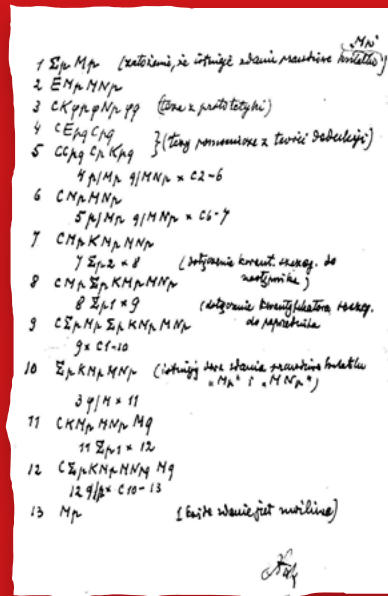 „Mp"
1 Σp Mp (założenie, że istnieje zdanie prawdziwe kształtu)
2 EMpMNp
3 CKφpφNpφq (teza z prototetyki)
4 CEpqCpq
5 CCpqCpKpq } (tezy pomocnicze z teorii dedukcji)
4 p/Mp q/MNp × C2-6
6 CMpMNp
5 p/Mp q/MNp × C6-7
7 CMpKMpMNp
7 Σp2 × 8 (dołączenie kwant. szczeg. do
8 CMpΣpKMpMNp następnika)
8 Σp1 × 9 (dołączenie kwantyfikatora szczeg.
9 CΣpMpΣpKMpMNp do poprzednika
9 × C1-10
10 ΣpKMpMNp (istnieją dwa zdania prawdziwe kształtu
„Mp" i „MNp")
3 φ/M × 11
11 CKMpMNpMq
11 Σp1 × 12
12 CΣpKMpMNpMq
12 q/p × C10-13
13 Mp (każde zdanie jest możliwe)